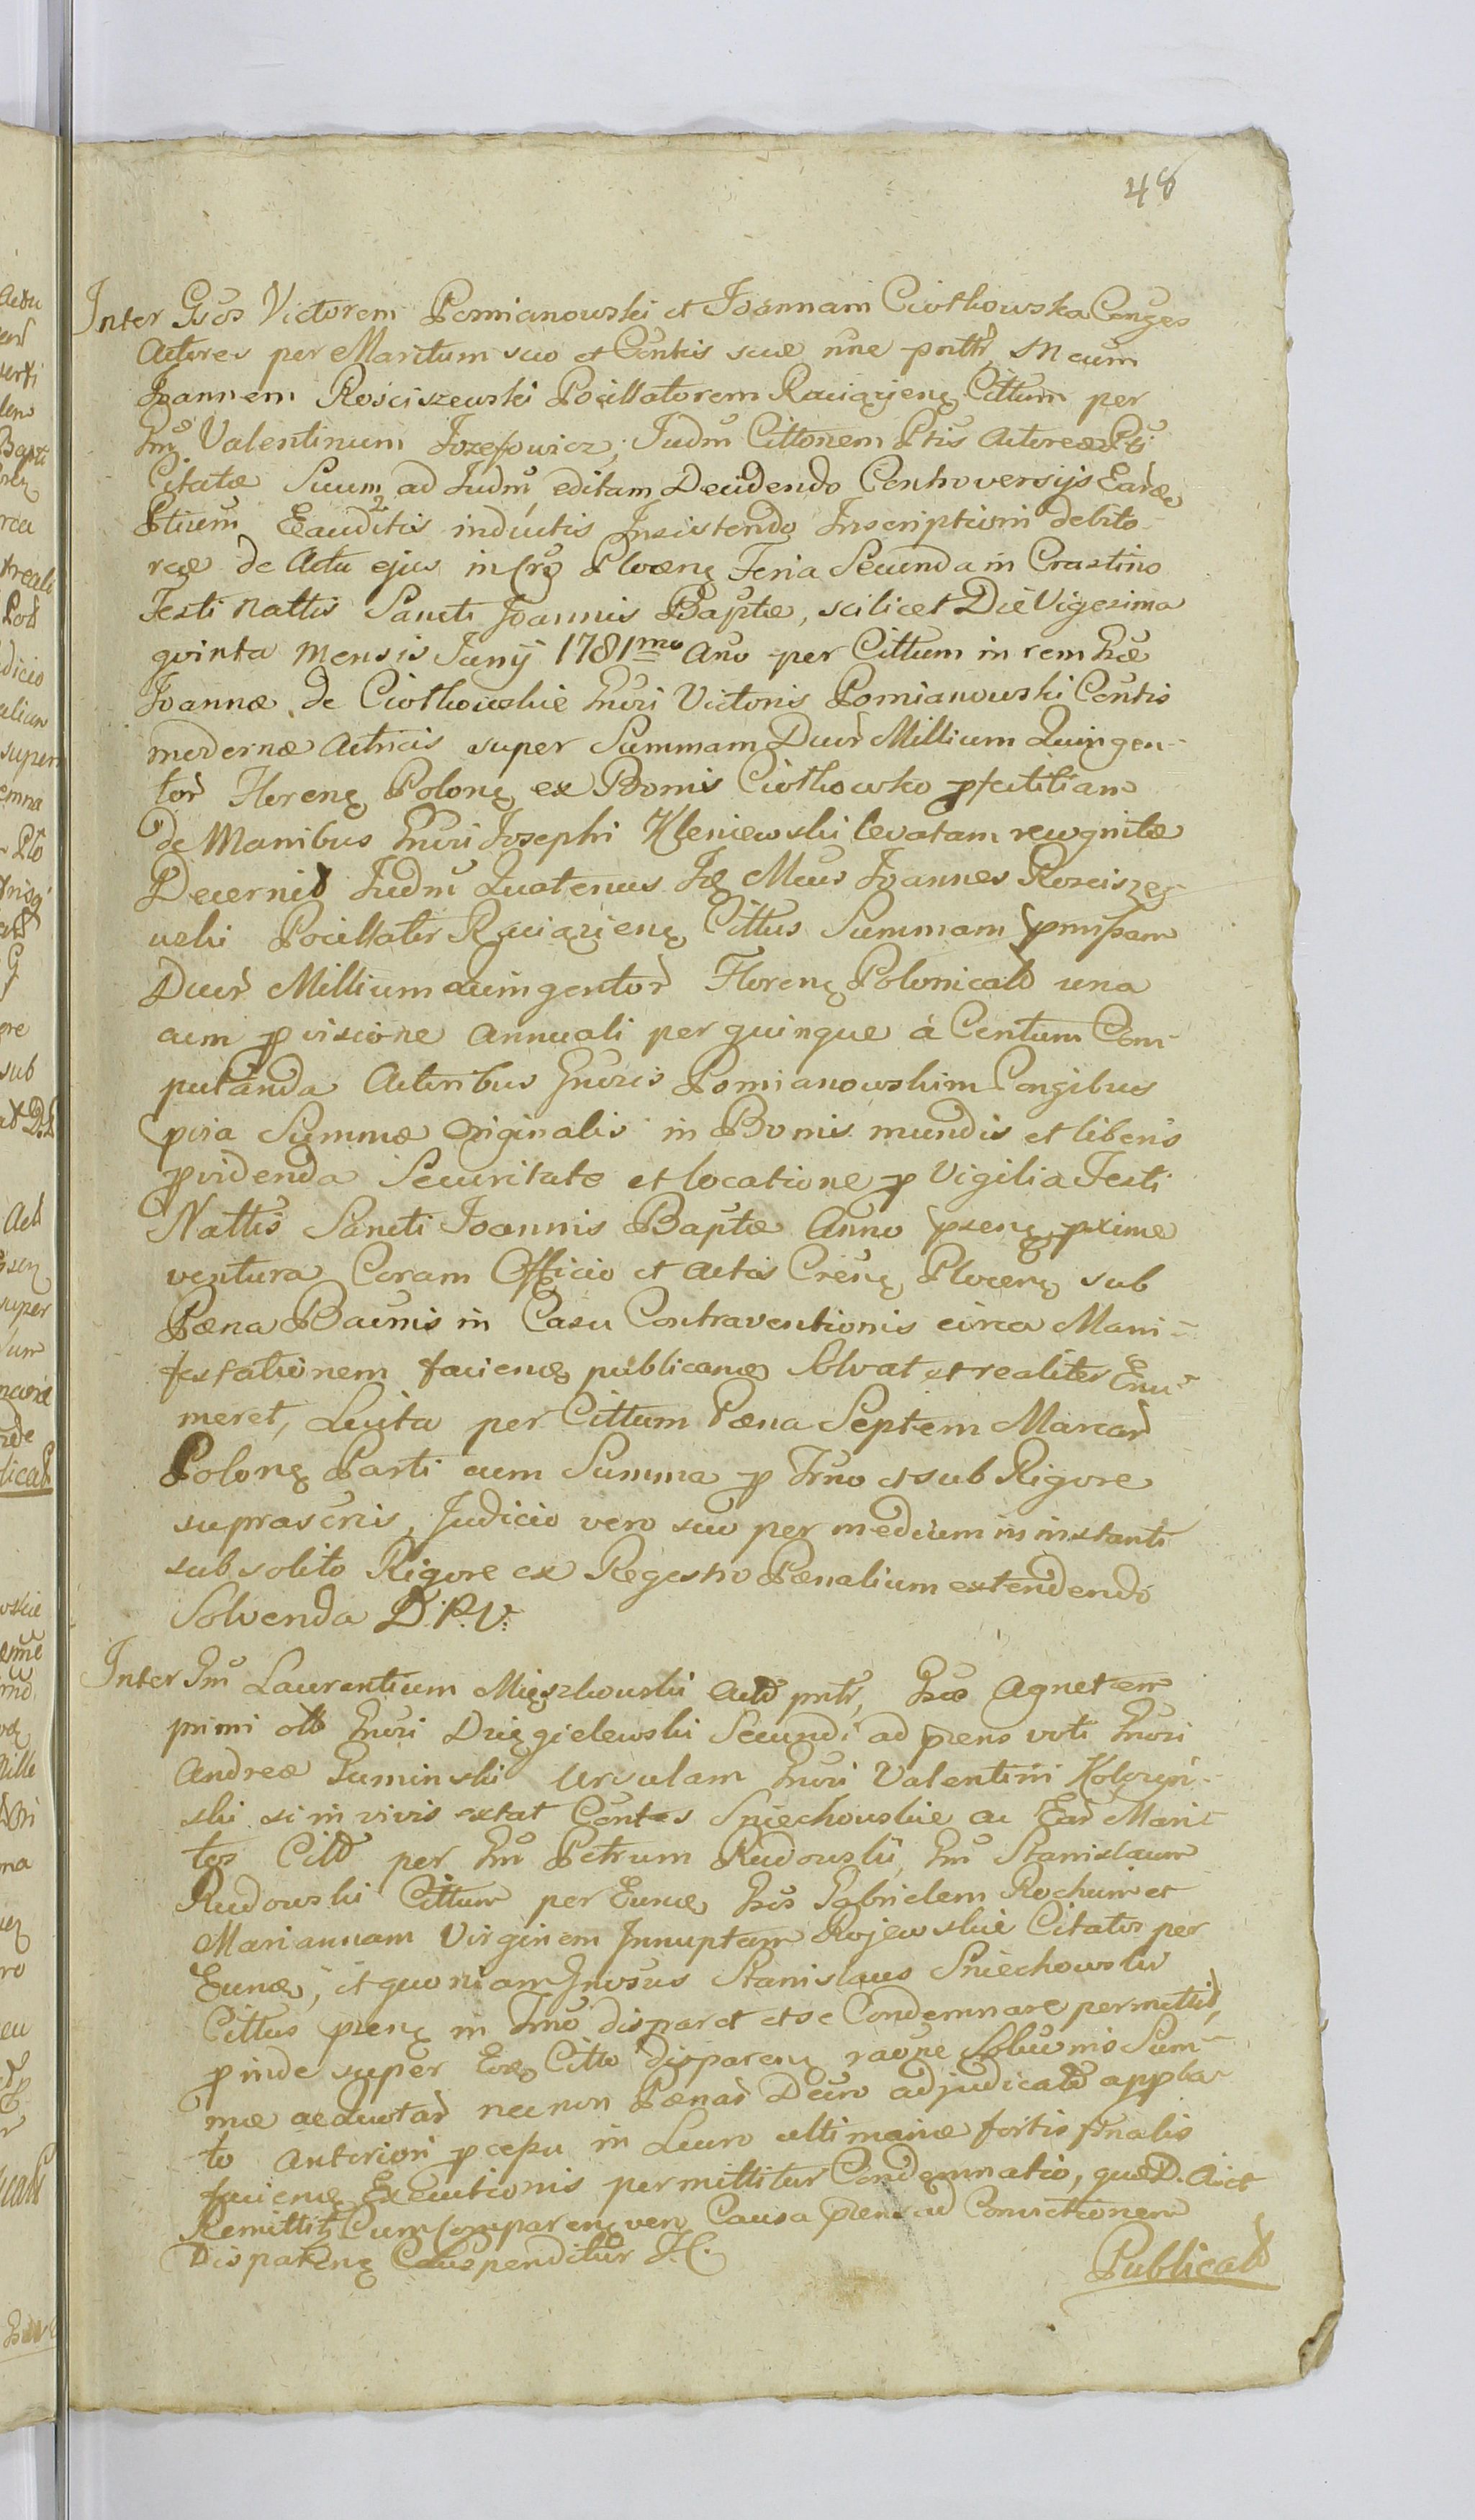 48
Inter Gsos Victorem Pomianowski et Joannam Ciothowska Conges
Actores per Maritum suo et Contis suæ nne pntr, Mcum
Joannem Rosciszewski Pocillatorem Raciązieng Cittum per
Gm Valentinum Jozefowicz, Judm Cittonem Ptis Actoreæ Pti
Citatæ Suum ad Judm editam Decidendo Controversijs Earde
Ptium Exauditis inductis Insistendo Inscriptioni debito-
riæ de Actu ejus in Cro Ploceng Feria Secunda in Crastino
Festi Nattis Sancti Joannis Baptæ, scilicet Die Vigesima
qvinta Mensis Junij 1781mo Ano per Cittum in rem Gsæ
Joannæ de Ciothowskie Gnvri Victoris Pomianowski Contis
modernæ Actricis super Summam Duor Millium Quingen-
tor Floreng Polong ex Bonis Ciothowko pfectitiam
de Manibus Gnvri Josephi Kleniewski levatam recognitæ
Decernit Judm Quatenus Mcus Joannes Rosciszew
wski Pocillator Raciązieng Cittus Summam pmissam
Duor Millium quingentor Floreng Polonicald una
cum pvisione annuali per quinque à Centum Com-
putanda Actoribus Gnvris Pomianowskim Congibus
pvia Summæ Originalis in Bonis mundis et liberis
pvidenda Securitate et locatione p Vigilia Festi
Nattis Sancti Joannis Baptæ Anno pseng pxime
ventura Coram Officio et Actis Creng Ploceng sub
Pæna Bacnis in Casu Contraventionis circa Mani-
festationem faciend publicand Solvat et realiter Enu-
meret, Luita per Cittum Pæna Septem Marcar
Polong Parti cum Summa p Trno et sub Rigore
suprascris, Judicio vero suo per medium in instanti
sub solito Rigore ex Regestro Pænalium extendendo
Solvenda D. P. V.
Inter Gm Laurentium Mięszkowski Actd pntr, Gsæ Agnetem
primi otti Gnvri Dzięgielewski Secundi ad psens voti Gnvri
Andreæ Guminski Ursulam Gnvri Valentini Kolozyn-
ski si in vivis extat Contes Sniechowskie ac Ear Mari-
tos Citd per Gm Petrum Rudowski, Gm Stanislaum
Rudowski Cittum per Eund Gsos Gabrielem Rochum et
Mariannam Virginem Innuptam Rojewskie Citatos per
Eund, et quoniam Gnvsus Stanislaus Sniechowski
Cittus pseng in Trno disparet et se Condemnare permittit,
pinde super Eod Citto dispareng raone Solucnis Sum-
mæ aeductar necnon Pænar Decro adjudicatd appba-
to anteriori pcessu in Lucro ultimariæ fortis finalis
faciend Executionis permittitur Condemnatio, quæ D. Aict
Remittit Cum Compareng vero Causa psens ad Convictionem
Dispareng Suspenditur J. C.
Publicatd